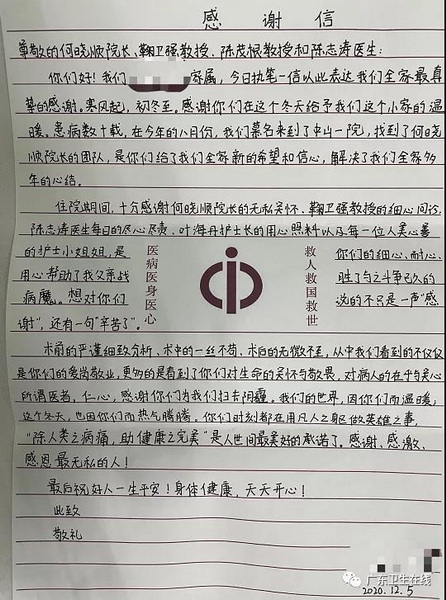 感谢信
尊敬的何晓顺院长、鞠卫强教授、陈茂根教授和陈志涛医生:
你们好!我们 家属,今日执笔一信以此表达我们全家最真
挚的感谢。寒风起,初冬至。感谢你们在这个冬天给予我们这个小家的温
暖。患病数十载,在今年的八月份,我们慕名来到了中山一院,找到了何晓
顺院长的团队,是你们给了我们全家新的希望和信心,解决了我们全家多
年的心结。
住院期间,十分感谢何晓顺院长的无私关怀、鞠卫强教授的细心问诊、
陈志涛医生每日的尽心尽责、叶海丹护士长的用心照料以及每一位人美心善
的护士小姐姐,是 你们的细心、耐心、
用心帮助了我父亲战 胜了与之斗争已久的
病魔。想对你们 说的不只是一声“感
谢”,还有一句“辛苦了”。
医病医身医心
救人救国救世
术前的严谨细致分析、术中的一丝不苟、术后的无微不至,从中我们看到的不仅仅
是你们的爱岗敬业,更多的是看到了你们对生命的关怀与敬畏,对病人的在乎与关心
所谓医者,仁心,感谢你们为我们扫去阴霾。我们的世界,因你们而温暖;
这个冬天,也因你们而热气腾腾。你们时刻都在用凡人之躯做英雄之事,
“除人类之病痛,助健康之完美”是人世间最美好的承诺了。感谢、感激、
感恩最无私的人!
最后祝好人一生平安!身体健康,天天开心!
此致
敬礼
2020.12.5
广东卫生在线